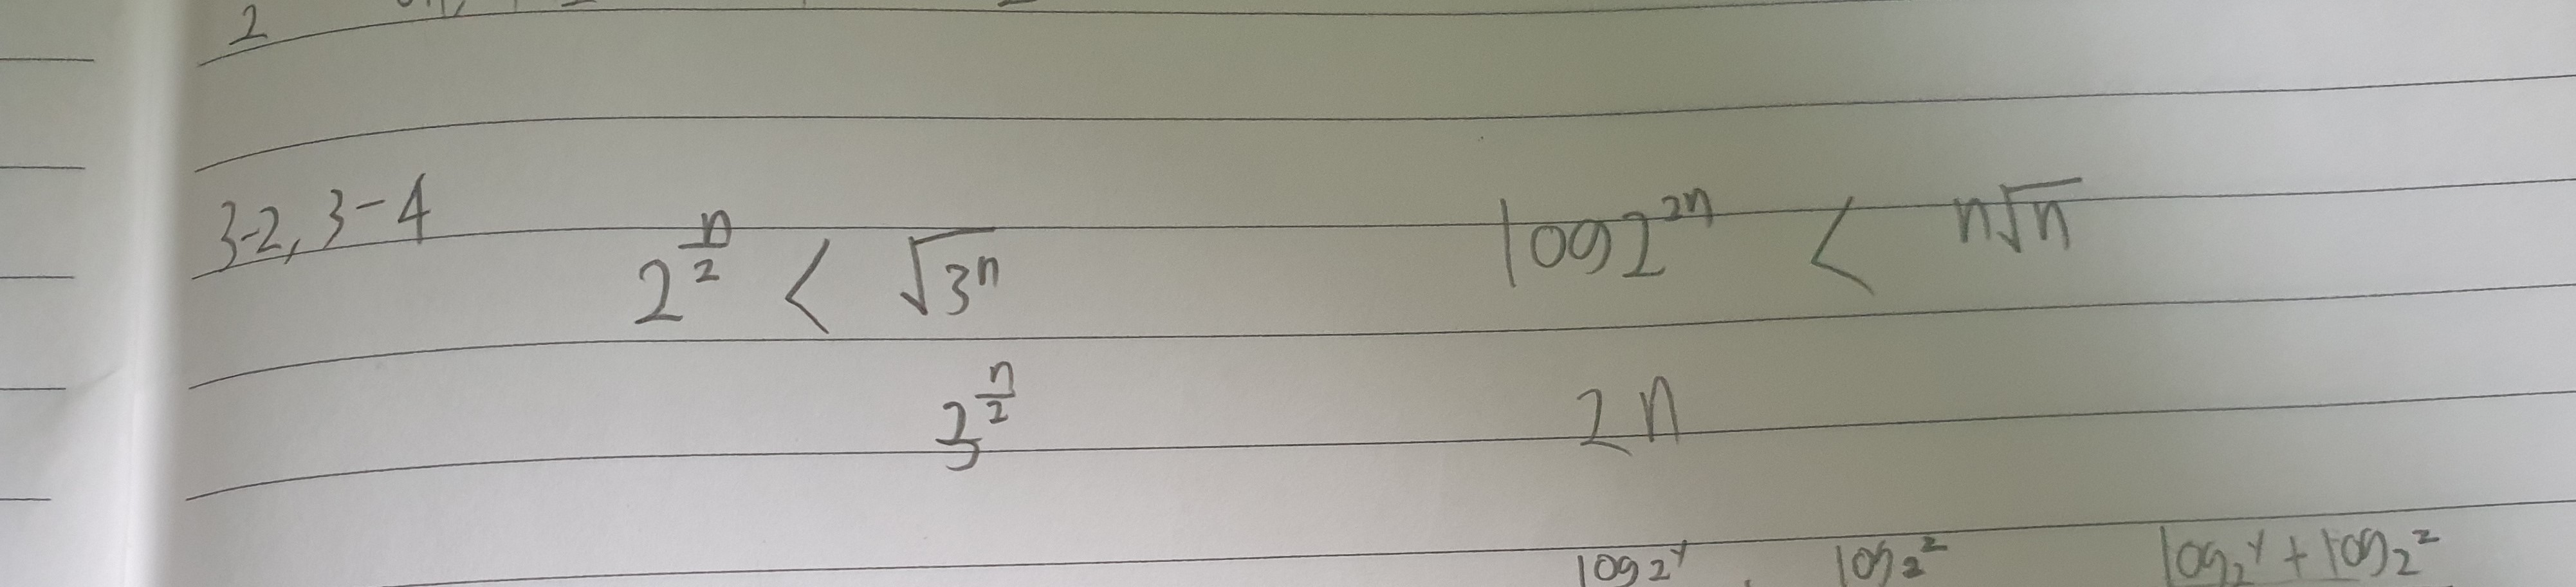 2
3-2, 3-4
2^{n/2} < √3ⁿ
log2^{2n} < n√n
3^{n/2}
2n
log2^y . log₂^z log₂^y + log₂^z